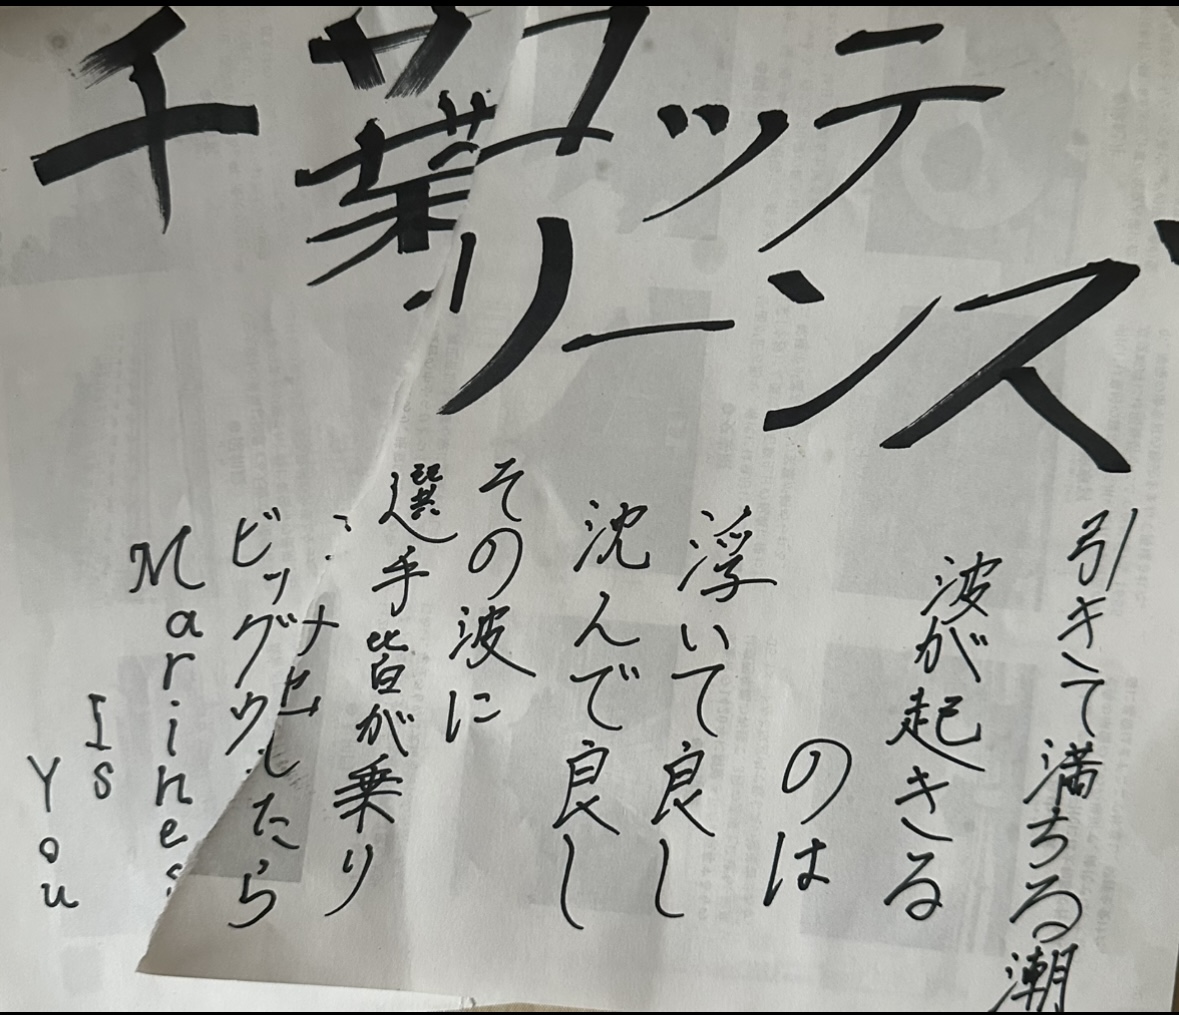 千葉ロッテ
リーンズ
引きて満ちる潮
波が起きる
のは
浮いて良し
沈んで良し
その波に
選手皆が乗り
ビッグウ
したら
Marines
IS
You